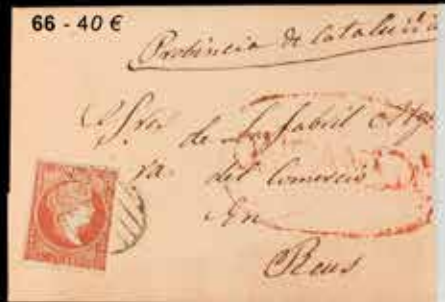 66 - 40 €
Provincia de Cataluña
Sres. de La Fabril Alg
ra. del Comercio
En
Reus